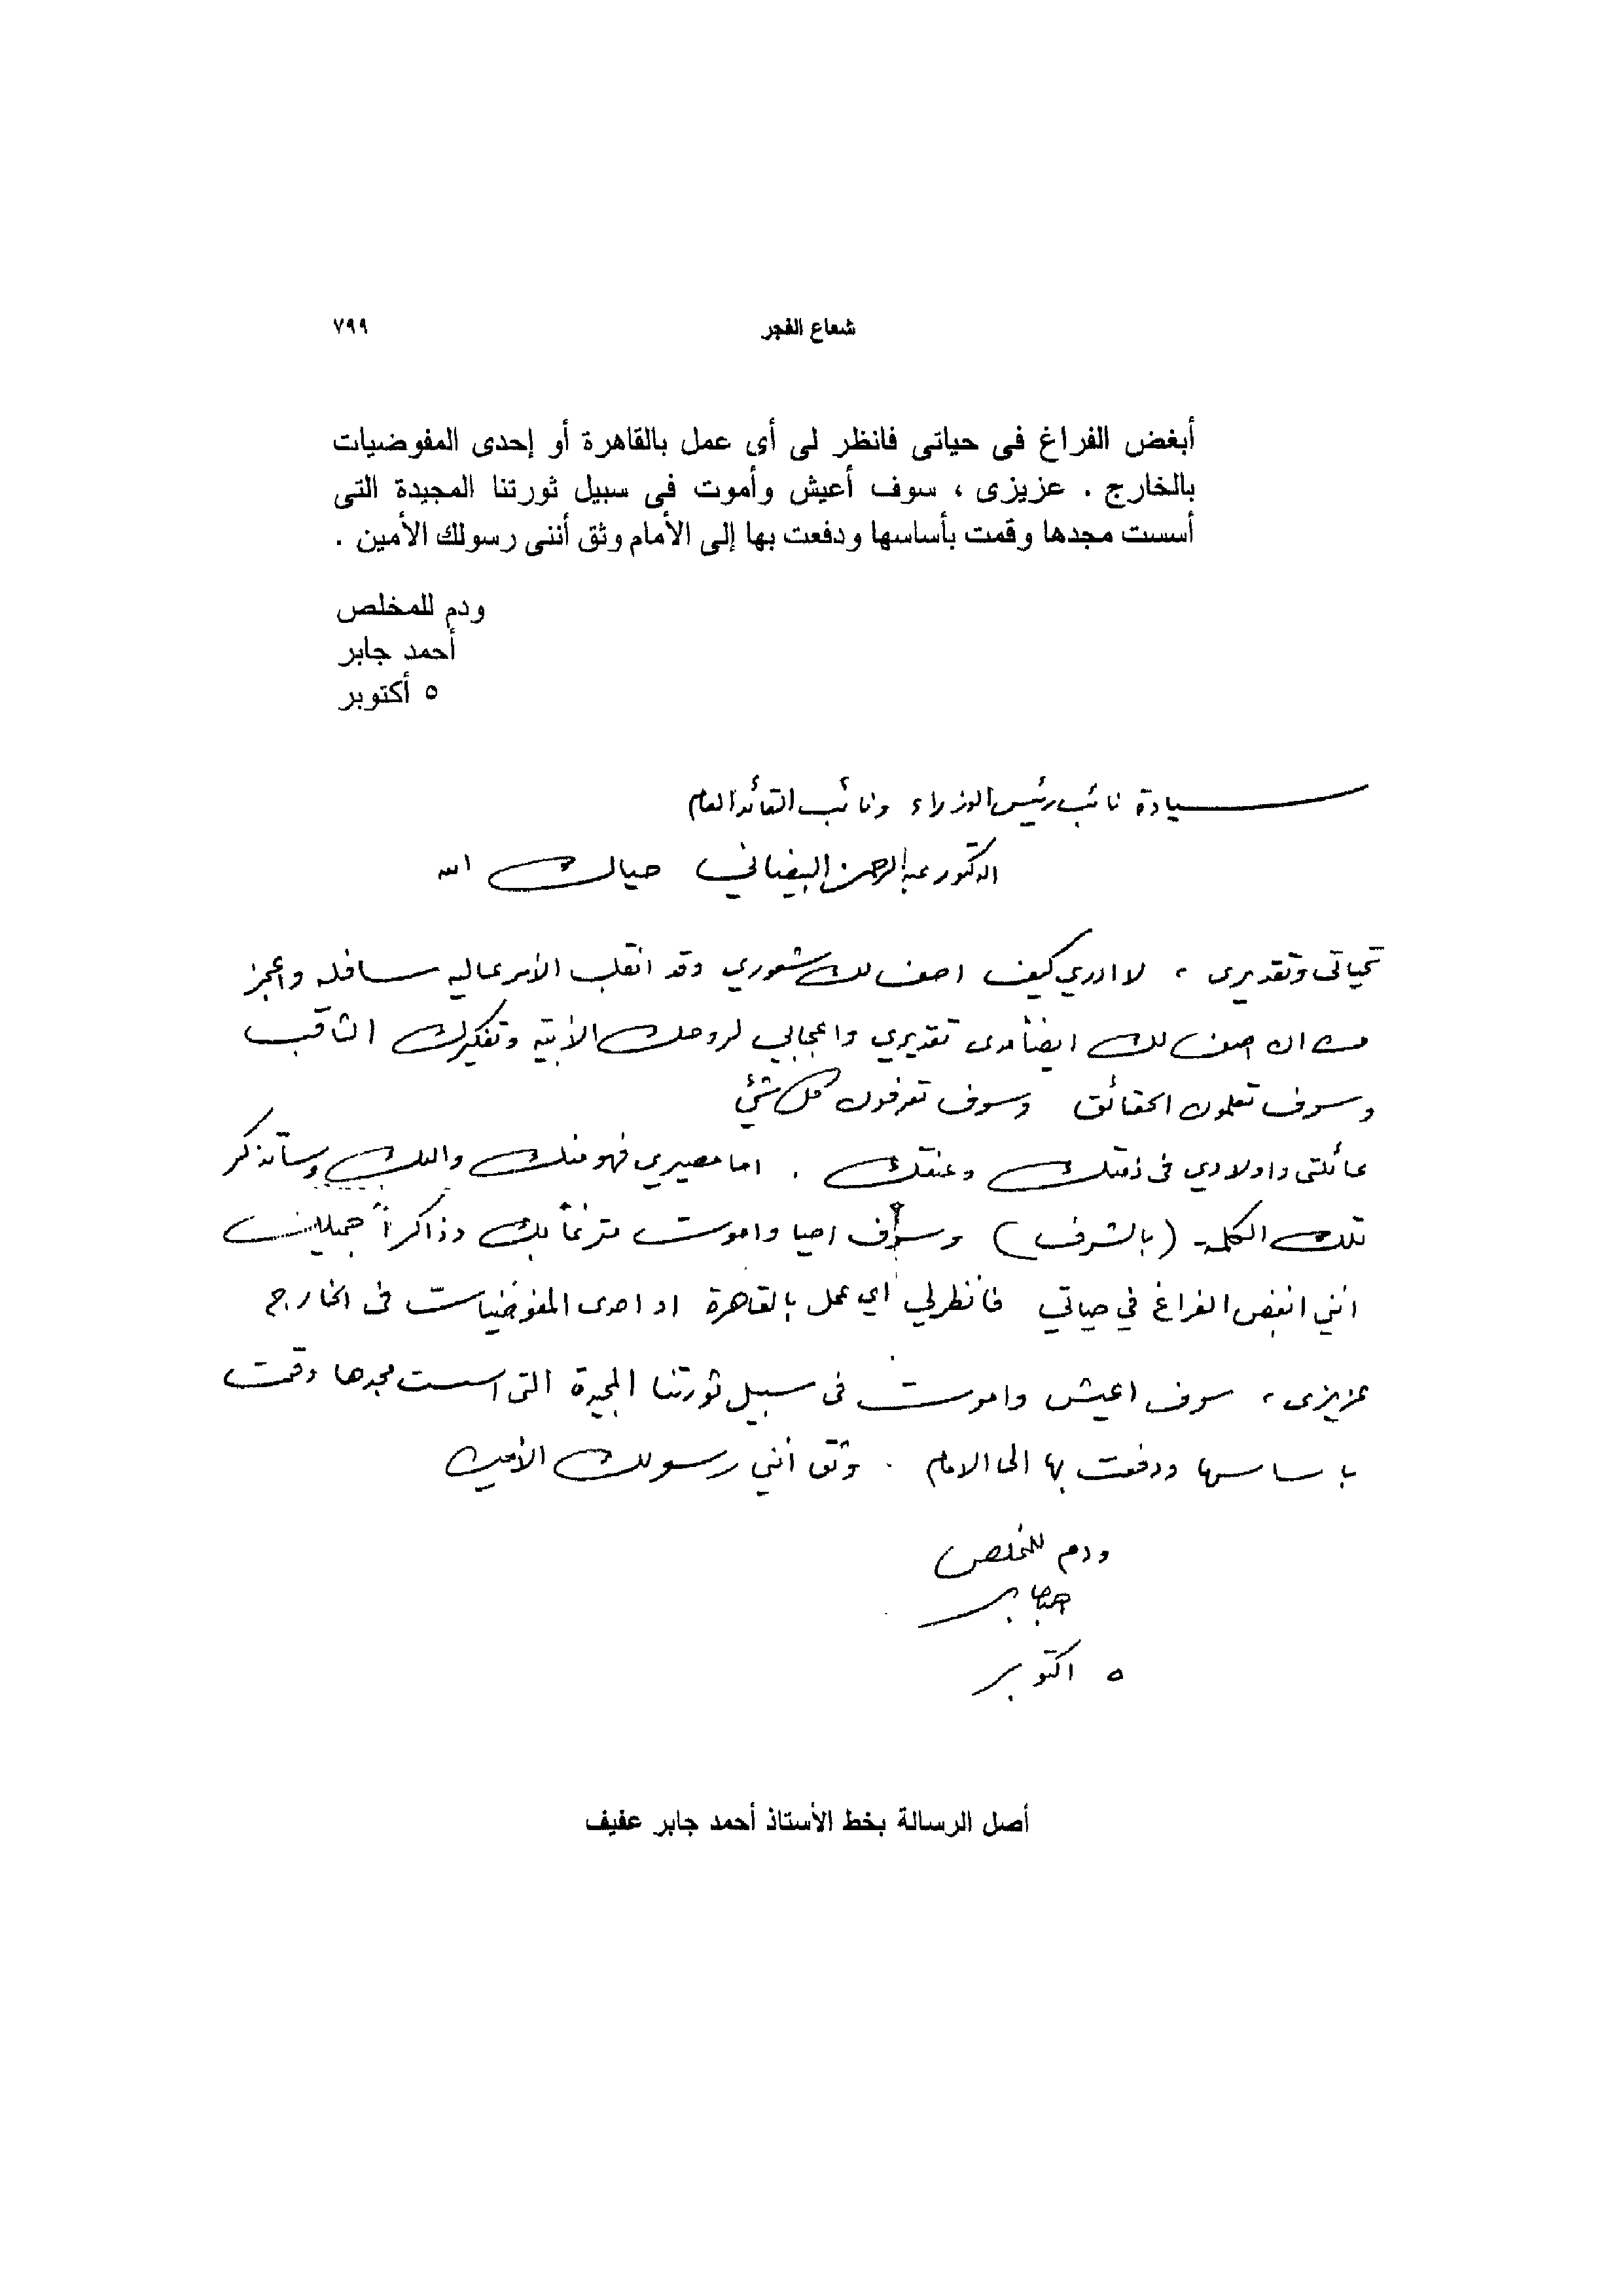 شعاع الفجر ٧٩٩
أبغض الفراغ فى حياتى فانظر لى أى عمل بالقاهرة أو إحدى المفوضيات
بالخارج . عزيزى ، سوف أعيش وأموت فى سبيل ثورتنا المجيدة التى
أسست مجدها وقمت بأساسها ودفعت بها إلى الأمام وثق أننى رسولك الأمين .
ودم للمخلص
أحمد جابر
٥ أكتوبر
سيادة نائب رئيس الوزراء ونائب القائد العام
الدكتور عبدالرحمن البيضاني حياك الله
تحياتى وتقديرى ، لا ادري كيف اصف لك شعوري وقد انقلب الأمر عاليه سافله واعجز
من ان اصف لك ايضاً مدى تقديري واعجابي لروحك الأبيّة وتفكيرك الثاقب
وسوف تعلمون الحقائق وسوف تعرفون كل شئ
عائلتى واولادي فى ذمتك وعنقك . اما مصيري فهو منك واليك وستأتذكر
تلك الكلمة (بالشرف) وسوف احيا واموت مترنماً بك وذاكراً جميلك
انني ابغض الفراغ في حياتي فانظر لي أي عمل بالقاهرة او احدى المفوضيات فى الخارج
عزيزى ، سوف اعيش واموت فى سبيل ثورتنا المجيدة التى اسست مجدها وقمت
باساسها ودفعت بها الى الامام . وثق أنني رسولك الأمين
ودم للمخلص
احمد جابر
٥ اكتوبر
أصل الرسالة بخط الأستاذ أحمد جابر عفيف